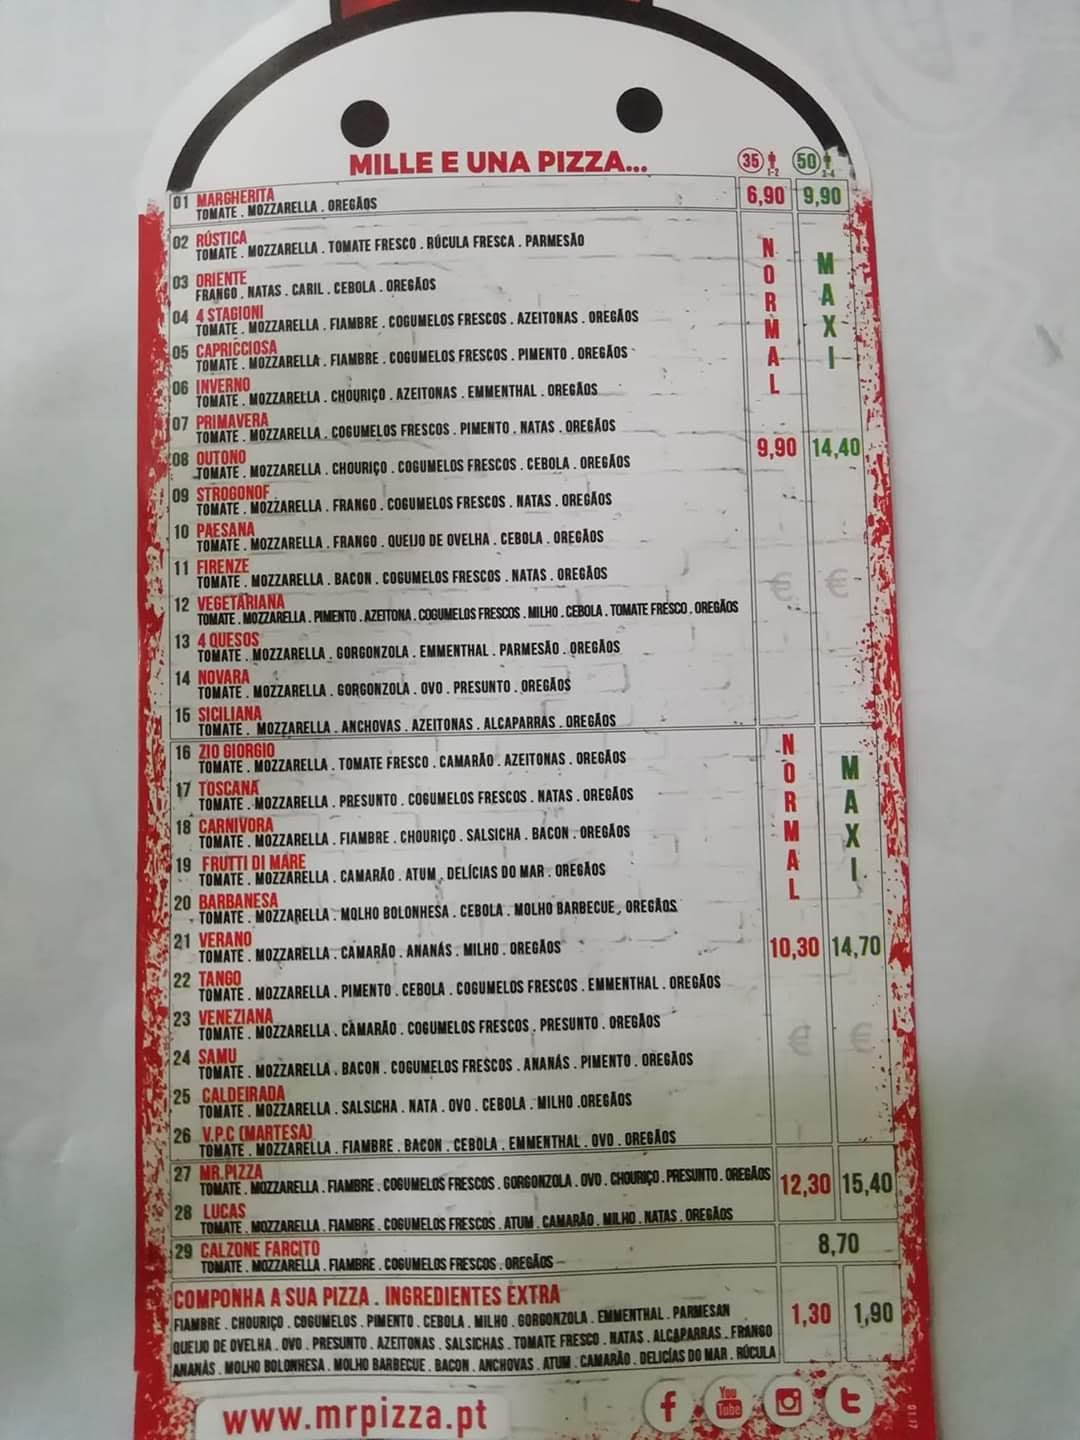 MILLE E UNA PIZZA... 35 1-2 50 3-4
01 MARGHERITA 6,90 9,90
TOMATE . MOZZARELLA . OREGÃOS
02 RÚSTICA
TOMATE . MOZZARELLA . TOMATE FRESCO . RÚCULA FRESCA . PARMESÃO
NORMAL MAXI
03 ORIENTE
FRANGO . NATAS . CARIL . CEBOLA . OREGÃOS
04 4 STAGIONI
TOMATE . MOZZARELLA . FIAMBRE . COGUMELOS FRESCOS . AZEITONAS . OREGÃOS
05 CAPRICCIOSA
TOMATE . MOZZARELLA . FIAMBRE . COGUMELOS FRESCOS . PIMENTO . OREGÃOS
06 INVERNO
TOMATE . MOZZARELLA . CHOURIÇO . AZEITONAS . EMMENTHAL . OREGÃOS
07 PRIMAVERA
TOMATE . MOZZARELLA . COGUMELOS FRESCOS . PIMENTO . NATAS . OREGÃOS
9,90 14,40
08 OUTONO
TOMATE . MOZZARELLA . CHOURIÇO . COGUMELOS FRESCOS . CEBOLA . OREGÃOS
09 STROGONOF
TOMATE . MOZZARELLA . FRANGO . COGUMELOS FRESCOS . NATAS . OREGÃOS
10 PAESANA
TOMATE . MOZZARELLA . FRANGO . QUEIJO DE OVELHA . CEBOLA . OREGÃOS
11 FIRENZE
TOMATE . MOZZARELLA . BACON . COGUMELOS FRESCOS . NATAS . OREGÃOS
€ €
12 VEGETARIANA
TOMATE . MOZZARELLA . PIMENTO . AZEITONA . COGUMELOS FRESCOS . MILHO . CEBOLA . TOMATE FRESCO . OREGÃOS
13 4 QUESOS
TOMATE . MOZZARELLA . GORGONZOLA . EMMENTHAL . PARMESÃO . OREGÃOS
14 NOVARA
TOMATE . MOZZARELLA . GORGONZOLA . OVO . PRESUNTO . OREGÃOS
15 SICILIANA
TOMATE . MOZZARELLA . ANCHOVAS . AZEITONAS . ALCAPARRAS . OREGÃOS
16 ZIO GIORGIO
TOMATE . MOZZARELLA . TOMATE FRESCO . CAMARÃO . AZEITONAS . OREGÃOS
NORMAL MAXI
17 TOSCANA
TOMATE . MOZZARELLA . PRESUNTO . COGUMELOS FRESCOS . NATAS . OREGÃOS
18 CARNIVORA
TOMATE . MOZZARELLA . FIAMBRE . CHOURIÇO . SALSICHA . BACON . OREGÃOS
19 FRUTTI DI MARE
TOMATE . MOZZARELLA . CAMARÃO . ATUM . DELÍCIAS DO MAR . OREGÃOS
20 BARBANESA
TOMATE . MOZZARELLA . MOLHO BOLONHESA . CEBOLA . MOLHO BARBECUE . OREGÃOS
21 VERANO
TOMATE . MOZZARELLA . CAMARÃO . ANANÁS . MILHO . OREGÃOS
10,30 14,70
22 TANGO
TOMATE . MOZZARELLA . PIMENTO . CEBOLA . COGUMELOS FRESCOS . EMMENTHAL . OREGÃOS
23 VENEZIANA
TOMATE . MOZZARELLA . CAMARÃO . COGUMELOS FRESCOS . PRESUNTO . OREGÃOS
€ €
24 SAMU
TOMATE . MOZZARELLA . BACON . COGUMELOS FRESCOS . ANANÁS . PIMENTO . OREGÃOS
25 CALDEIRADA
TOMATE . MOZZARELLA . SALSICHA . NATA . OVO . CEBOLA . MILHO .OREGÃOS
26 V.P.C (MARTESA)
TOMATE . MOZZARELLA . FIAMBRE . BACON . CEBOLA . EMMENTHAL . OVO . OREGÃOS
27 MR.PIZZA
TOMATE . MOZZARELLA . FIAMBRE . COGUMELOS FRESCOS . GORGONZOLA . OVO . CHOURIÇO . PRESUNTO . OREGÃOS
12,30 15,40
28 LUCAS
TOMATE . MOZZARELLA . FIAMBRE . COGUMELOS FRESCOS . ATUM . CAMARÃO . MILHO . NATAS . OREGÃOS
29 CALZONE FARCITO 8,70
TOMATE . MOZZARELLA . FIAMBRE . COGUMELOS FRESCOS . OREGÃOS
COMPONHA A SUA PIZZA . INGREDIENTES EXTRA
FIAMBRE . CHOURIÇO . COGUMELOS . PIMENTO . CEBOLA . MILHO . GORGONZOLA . EMMENTHAL . PARMESAN 1,30 1,90
QUEIJO DE OVELHA . OVO . PRESUNTO . AZEITONAS . SALSICHAS . TOMATE FRESCO . NATAS . ALCAPARRAS . FRANGO
ANANÁS . MOLHO BOLONHESA . MOLHO BARBECUE . BACON . ANCHOVAS . ATUM . CAMARÃO . DELICÍAS DO MAR . RÚCULA
www.mrpizza.pt f You Tube t
01.17